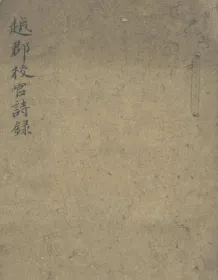 越郡校官詩錄